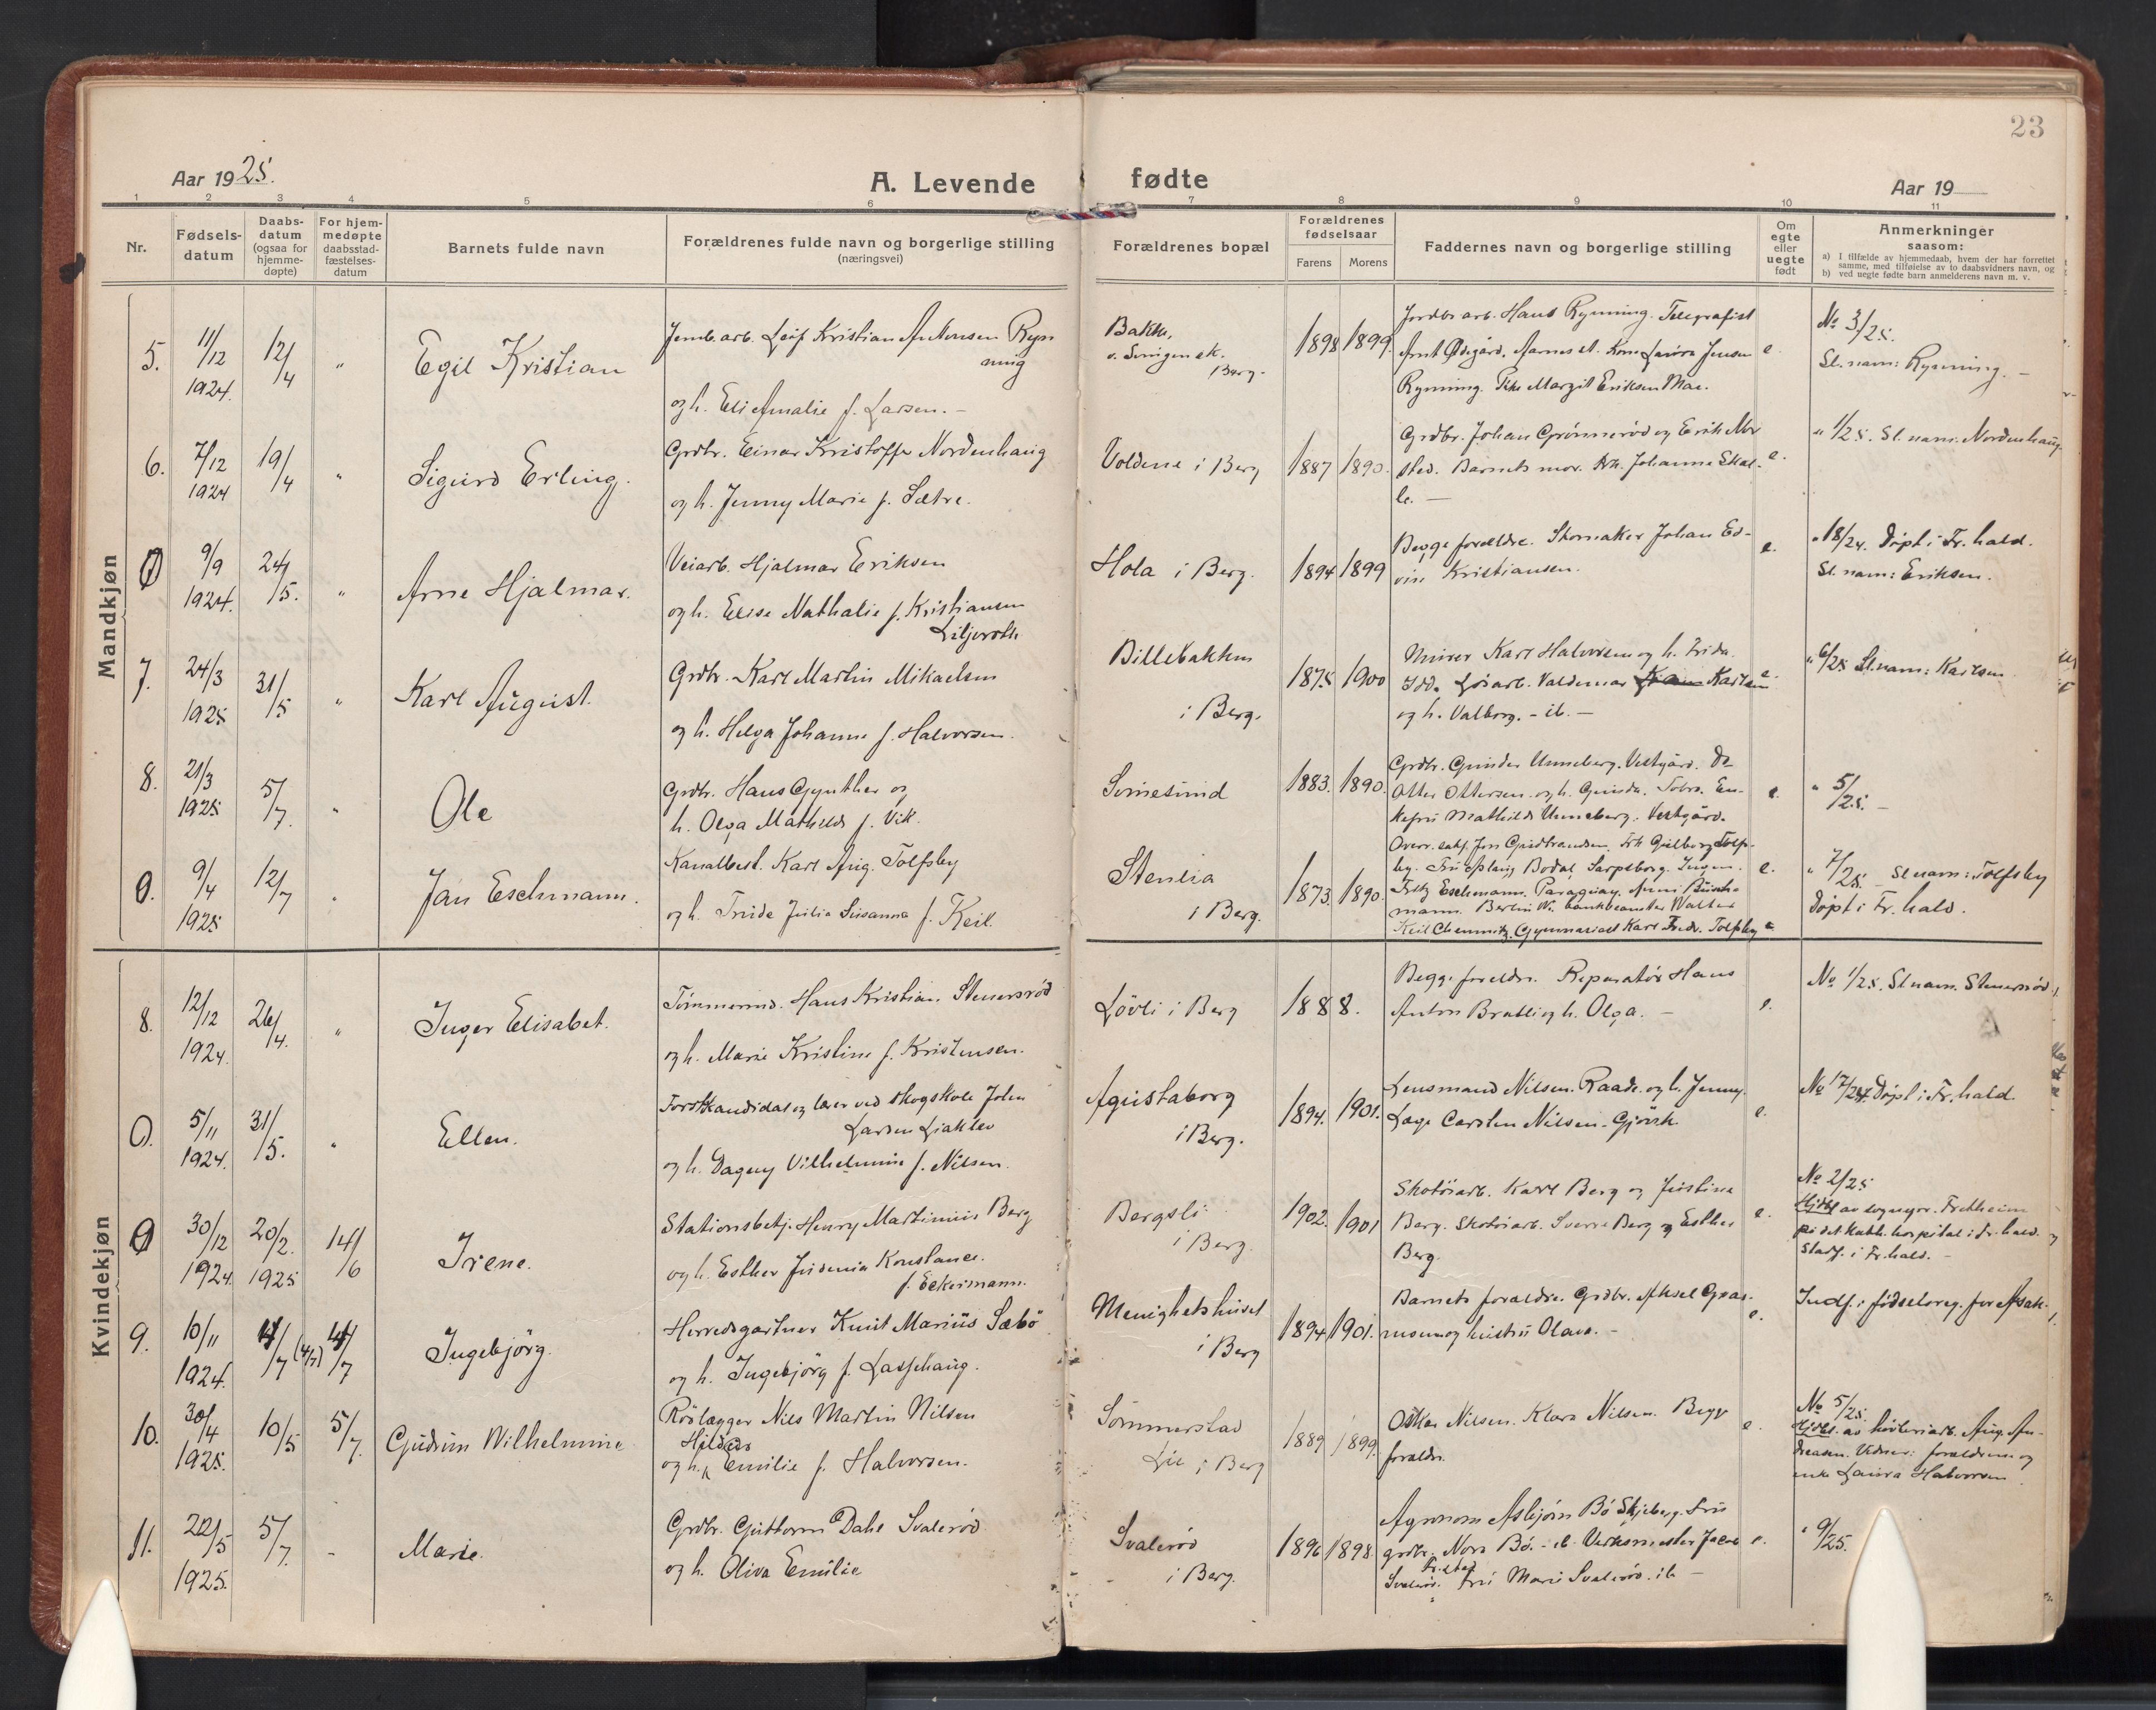 23
Aar 1925.
A. Levende fødte
Aar 19
1 2 3 4 5 6 7 8 9 10 11
Nr.
Fødsels-
datum
Daabs-
datum
(ogsaa for
hjemme-
døpte)
For hjem-
medøpte
daabsstad-
fæstelses-
datum
Barnets fulde navn
Forældrenes fulde navn og borgerlige stilling
(næringsvei)
Forældrenes bopæl
Forældrenes
fødselsaar
Farens Morens
Faddernes navn og borgerlige stilling
Om
egte
eller
uegte
født
Anmerkninger
saasom:
a) I tilfælde av hjemmedaab, hvem der har forrettet
samme, med tilføielse av to daabsvidners navn, og
b) ved uegte fødte barn anmelderens navn m. v.
Mandkjøn
5. 11/12 1924. 12/4 " Egil Kristian
Jernb.arb. Leif Kristian Antonsen Ryn
ning
og h. Eli Amalie f. Larsen. -
Bakke,
Berg.
1898 1899.
Jordbr.arb. Hans Rynning. Telegrafist
Arnt Ødegård, Kone Laura Jensen
Rynning. Pike Margit Eriksen
e.
No 3/25.
Sl.navn: Rynning. -
6. 7/12 1924 19/4 " Sigurd Erling.
Grdbr. Einar Kristoffer Nordenhaug
og h. Jenny Marie f. Sætre.
Voldene i Berg 1887 1890.
Grdbr. Johan Grønnerød og Erik Nor
sted. Barnets mor. Frk. Johanne Skal-
le. -
e.
" 1/25. Sl. navn. Nordenhaug.
0 9/9 1924. 24/5. " Arne Hjalmar.
Veiarb. Hjalmar Eriksen
og h. Elise Nathalie f. Kristiansen
Liljeroth
Hola i Berg. 1894 1899
Begge forældre. Skomaker Johan Ed-
vin Kristiansen.
e.
" 18/24. Døpt i Fr.hald.
Sl. navn: Eriksen.
7. 24/3 1925 31/5 " Karl August.
Grdbr. Karl Martin Mikaelsen
og h. Helga Johanne f. Halvorsen.
Billebakken
i Berg.
1875 1900
Murer Karl Halvorsen og h. Frida.
Idd. Valdemar Karlsen
og h. Valborg. - ib. -
e.
" 6/25 Sl.navn: Karlsen
8. 21/3 1925 5/7. " Ole
Grdbr. Hans Gynther og
h. Olga Mathilde f. Vik.
1883. 1890.
Grdbr. Gunder Unneberg. Vestgård. Do
Otter Ottersen og h. Gunda. En-
kefru Mathilde Unneberg. Vestgård.
e.
" 5/25. -
0. 9/4 1925 12/7 " Jan Eschmann.
Kanalbest. Karl Aug. Tolfsby
og h. Trude Julie Susanna f. Keil.
Stenlia
i Berg.
1873. 1890.
Jens Gudbrandsen. Frk Gulborg Tolfs-
by. Fru Aslaug Bodal, Sarpsborg. Ingen.
Fritz Eschmann. Paraguay. Anni Busch-
mann. Berlin W. bankbeamter Walter
Keil Chemnitz. Gymnasiast Karl Fredr. Tolfsby
e.
" 7/25 Sl navn: Tolfsby
Døpt i Fr. hald.
Kvindekjøn
8. 12/12 1924. 26/4. " Inger Elisabet.
Tømmermd. Hans Kristian Stenersrød
og h. Marie Kristine f. Kristensen.
Løvli i Berg 1888.
Begge foreldre. Reparatør Hans
Anton Bratli og h. Olga. -
e.
No 1/25. Sl navn. Stenersrød.
0. 5/11 1924. 31/5. " Ellen.
Forstkandidat og lærer ved skogskole John
Larsen Liaklev
og h. Dagny Vilhelmine f. Nilsen.
Agustaborg
i Berg.
1894. 1901.
Lensmand Nilsen. Raade. og h. Jenny.
Lage Carsten Nilsen. Gjøvik
e.
No 17/24. Døpt i Fr. hald.
0 30/12 1924. 20/2. 1925 14/6 Irene.
Stationsbetj. Henry Martinius Berg
og h. Esther Konstance.
f. Eckermann.
Bergsli
i Berg.
1902. 1901
Skotøiarb. Karl Berg og Justine
Berg. Skotøiarb. Sverre Berg og Esther
Berg.
e.
No 2/25
Hjdbt av sognepr. Fretheim
på det kath. hospital i Fr.hald.
Stadf. i Fr.hald. -
9. 10/11 1924. 4/7 (4/7) 4/7 Ingebjørg.
Herredsgartner Knut Marius Sæbø
og h. Ingebjørg f. Lassehaug.
Menighetshuset
i Berg
1894 1901.
Barnets foreldre. Grdbr. Aksel Gras-
musen og hustru Olava. -
e.
Indf. i fødselsreg. for Asak.
10. 30/4 1925. 10/5 5/7. Gudrun Wilhelmine
Rørlægger Nils Martin Nilsen
Hildur
og h. Emilie f. Halvorsen.
Sommerstad
Lie i Berg
1889 1899.
Oskar Nilsen. Klara Nilsen. Begge
foreldre.
e.
No 5/25.
Hjdbt. av høvleriarb. Aug. An-
dreasen. Vidner: foreldrene og
enke Laura Halvorsen
11. 22/5 1925. 5/7. - Marie.
Grdbr. Guttorm Dahl Svalerød
og h. Oliva Emilie
Svalerød
i Berg.
1896 1898.
Agronom Asbjørn Bø Skjeberg. Fru
grdbr. Nora Bø. - ib. Verksmester Jacob
Svalerød. Fr.stad Fru Marie Svalerød. ib -
e.
" 9/25.